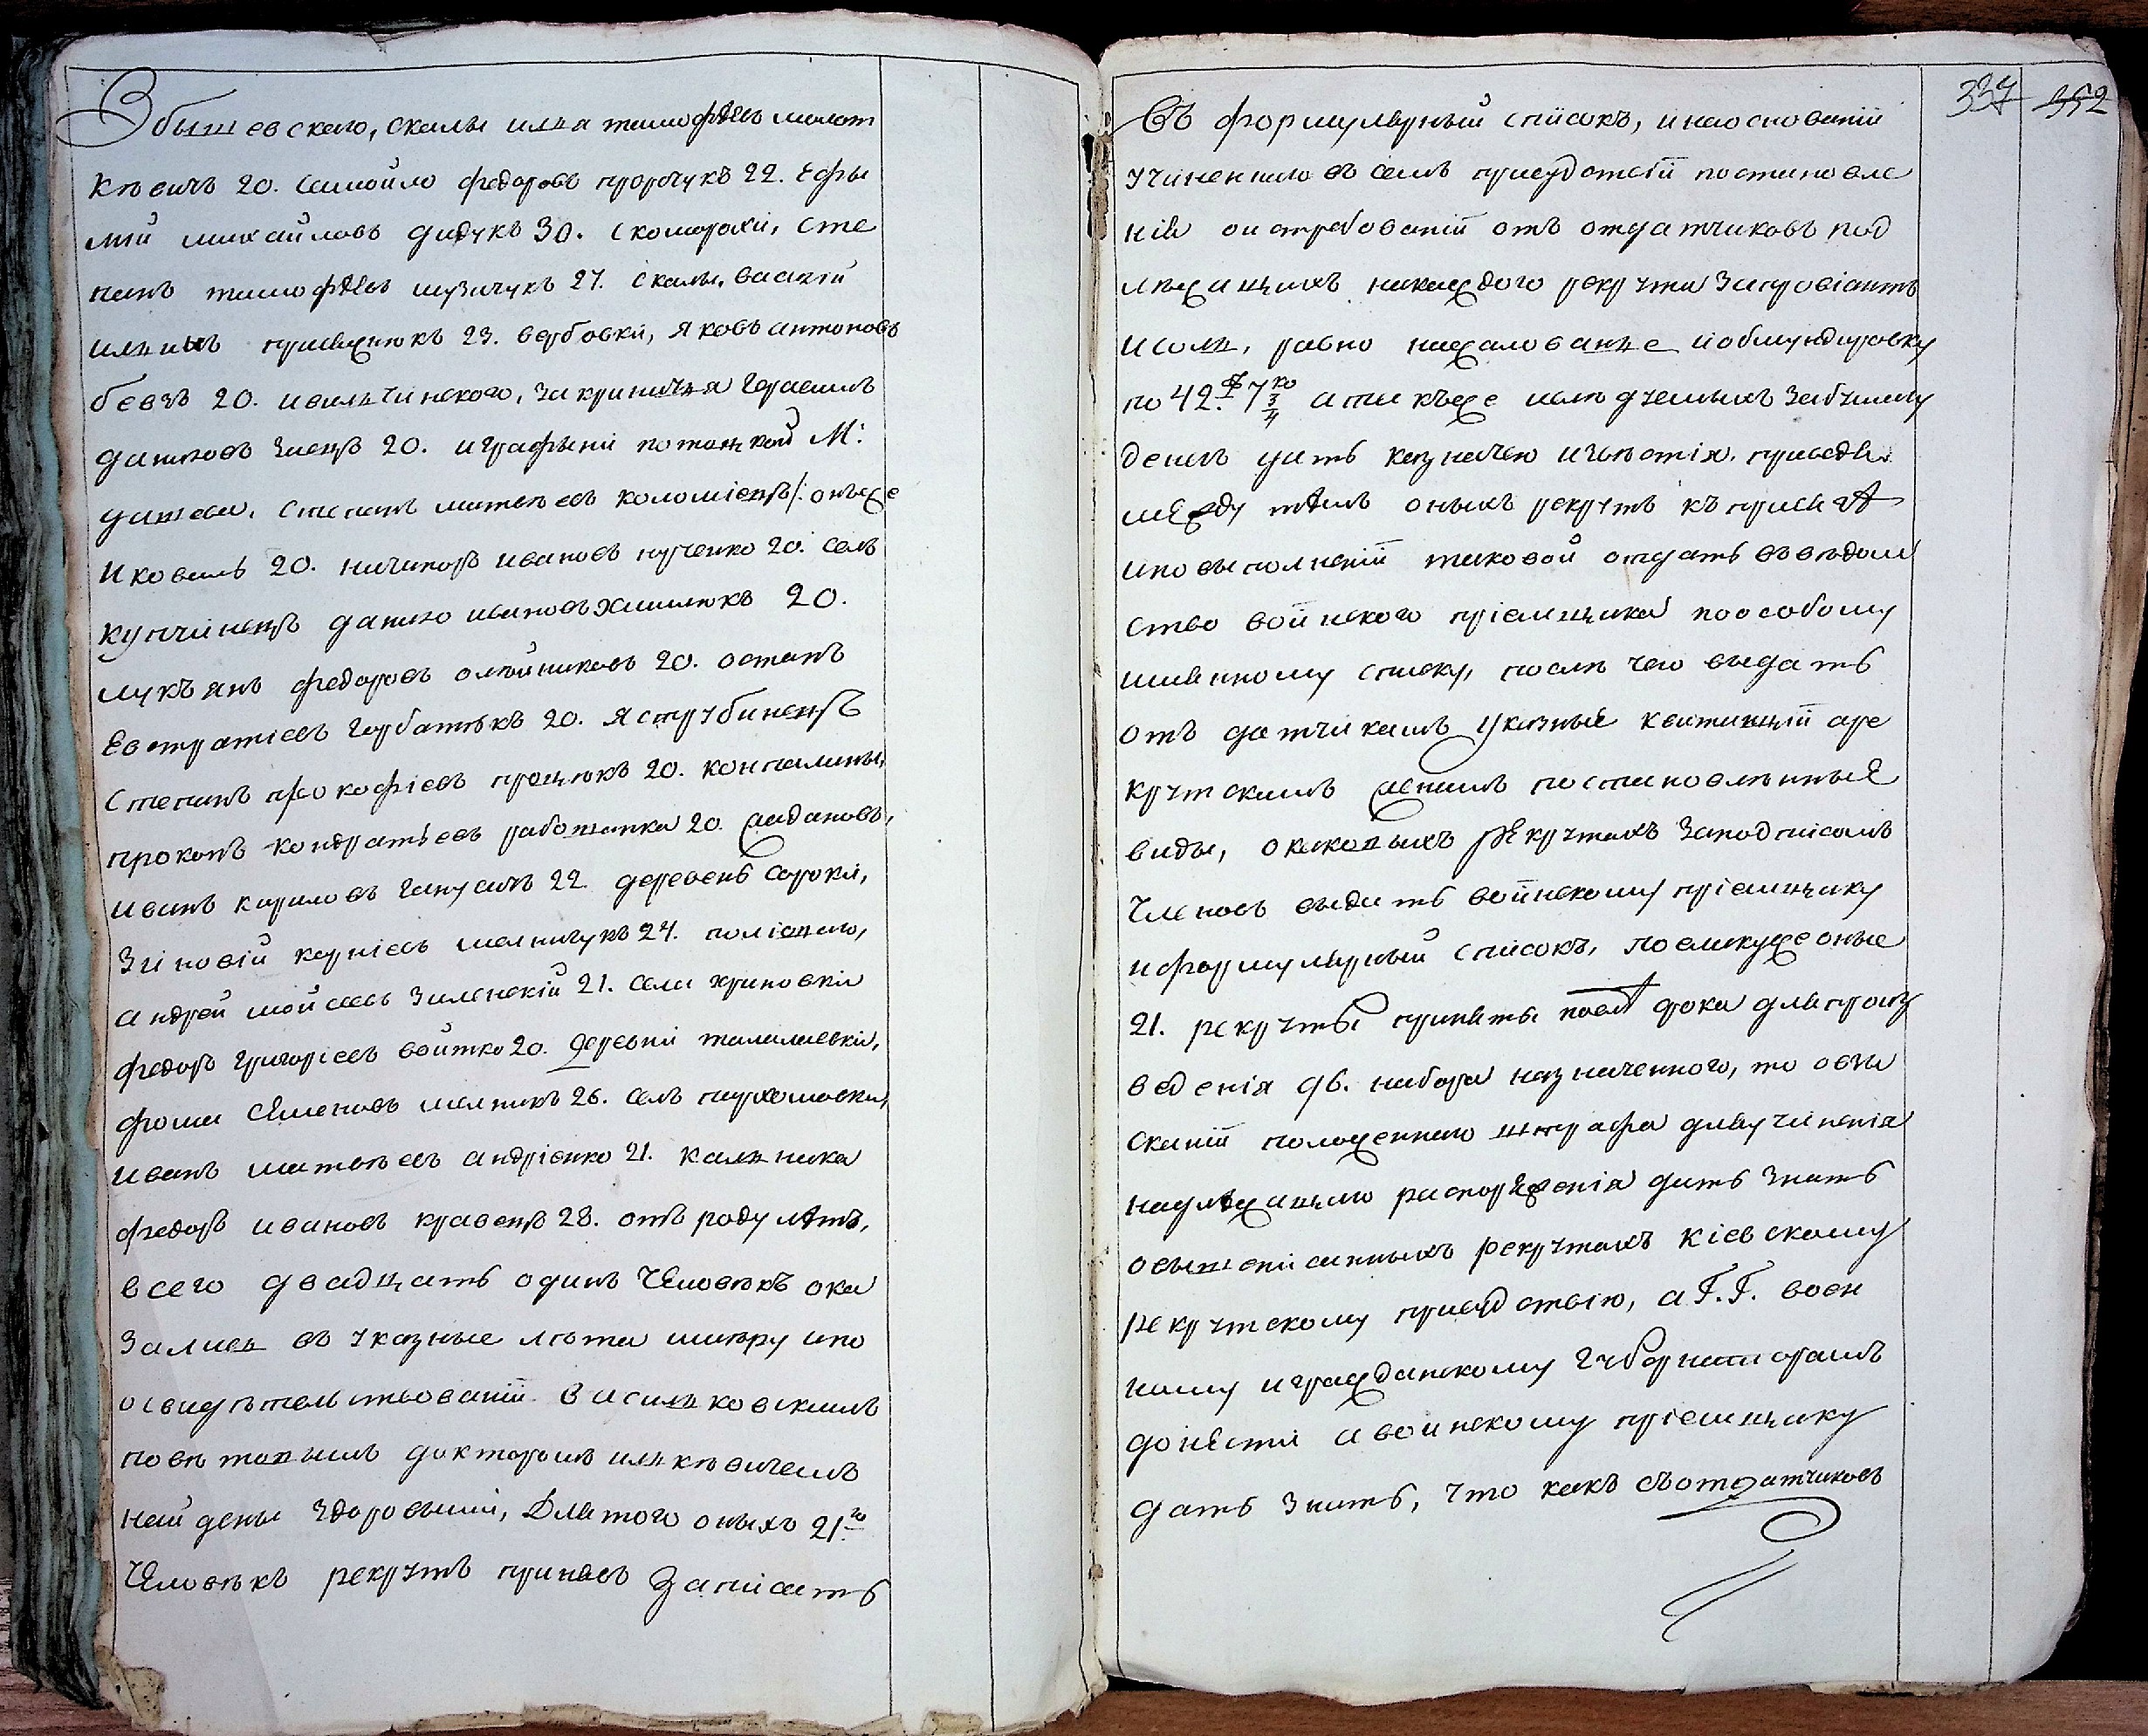 Збышевского, скалы илка тимофѣевъ молот
кѣвичъ 20. самойло федоровъ прорчукъ 22. ефы
мій михайловъ дидукъ 30. скоморохи, сте
панъ тимофѣевъ музичукъ 27. скалы, василій
ильинъ присяжнюкъ 23. вербовки, яковъ антоновъ
бевзъ 20. ивильчинского, закриничья герасимъ
даниловъ заецъ 20. играфыни потоцкой М:
дашева, степанъ матвѣевъ коломіецъ /: онъже
иковаль 20. ничипоръ ивановъ куценко 20. селъ
купчинецъ данило ивановъ хмилюкъ 20.
лукъянъ федоровъ олѣйниковъ 20. остапъ
Евстратіевъ горбатюкъ 20. яструбинецъ
степанъ прокофіевъ процюкъ 20. конталины,
прокопъ кондратьевъ работинка 20. жадановъ,
иванъ кириловъ гапусакъ 22. деревень сороки,
Зиновій карпіевъ мелничукъ 24. поліового,
андрей мойсеевъ зиленскій 21. села хриновки
федоръ григоріевъ войтко 20. деревни талалаевки,
фома семеновъ мелникъ 26. селъ пархомовки,
иванъ матвѣевъ андріенко 21. кальника
федоръ ивановъ кравецъ 28. отъ роду лѣтъ,
всего двадцать одинъ человѣкъ ока
зались въ указные лѣта имѣру ипо
освидѣтельствованіи васильковскимъ
повѣтовымъ докторомъ илькѣвичемъ
найдены здоровыми, Для того оныхъ 21го
Человѣкъ рекрутъ принявъ записать
337 352
Въ формулярный списокъ, инаоснованіи
учиненного въ семъ присудствіи постановле
нія оистребованіи отъ отдатчиковъ под
лежащихъ накаждого рекрута запровіантъ
исоль, равно нажалованье иобмундировку
по 42.р 7 3/4 ко атакъже иполученныхъ забумагу
денегъ дать казначею ичастія. приведя
между тѣмъ оныхъ рекрутъ къ присягѣ
ипо выполненіи таковой отдать въвѣдом
ство воинского пріемщика поособому
имянному списку, послѣ чего выдать
отдатчикамъ указные квитанціи аре
крутскимъ женамъ постановленные
виды, окаковыхъ рекрутахъ заподписомъ
Членовъ выдать воинскому пріемщику
иформулярный списокъ, поеликужъ оные
21. рекруты приняты послѣ срока дляпроиз
веденія 96. набора назначенного, то овзы
сканіи положенного штрафа дляучиненія
надлежащего распоряженія дать знать
овышеписанныхъ рекрутахъ кіевскому
рекрутскому присудствію, а Г.Г. воен
ному игражданскому губернаторамъ
донести авоинскому пріемщику
дать знать, что какъ съотдатчиковъ